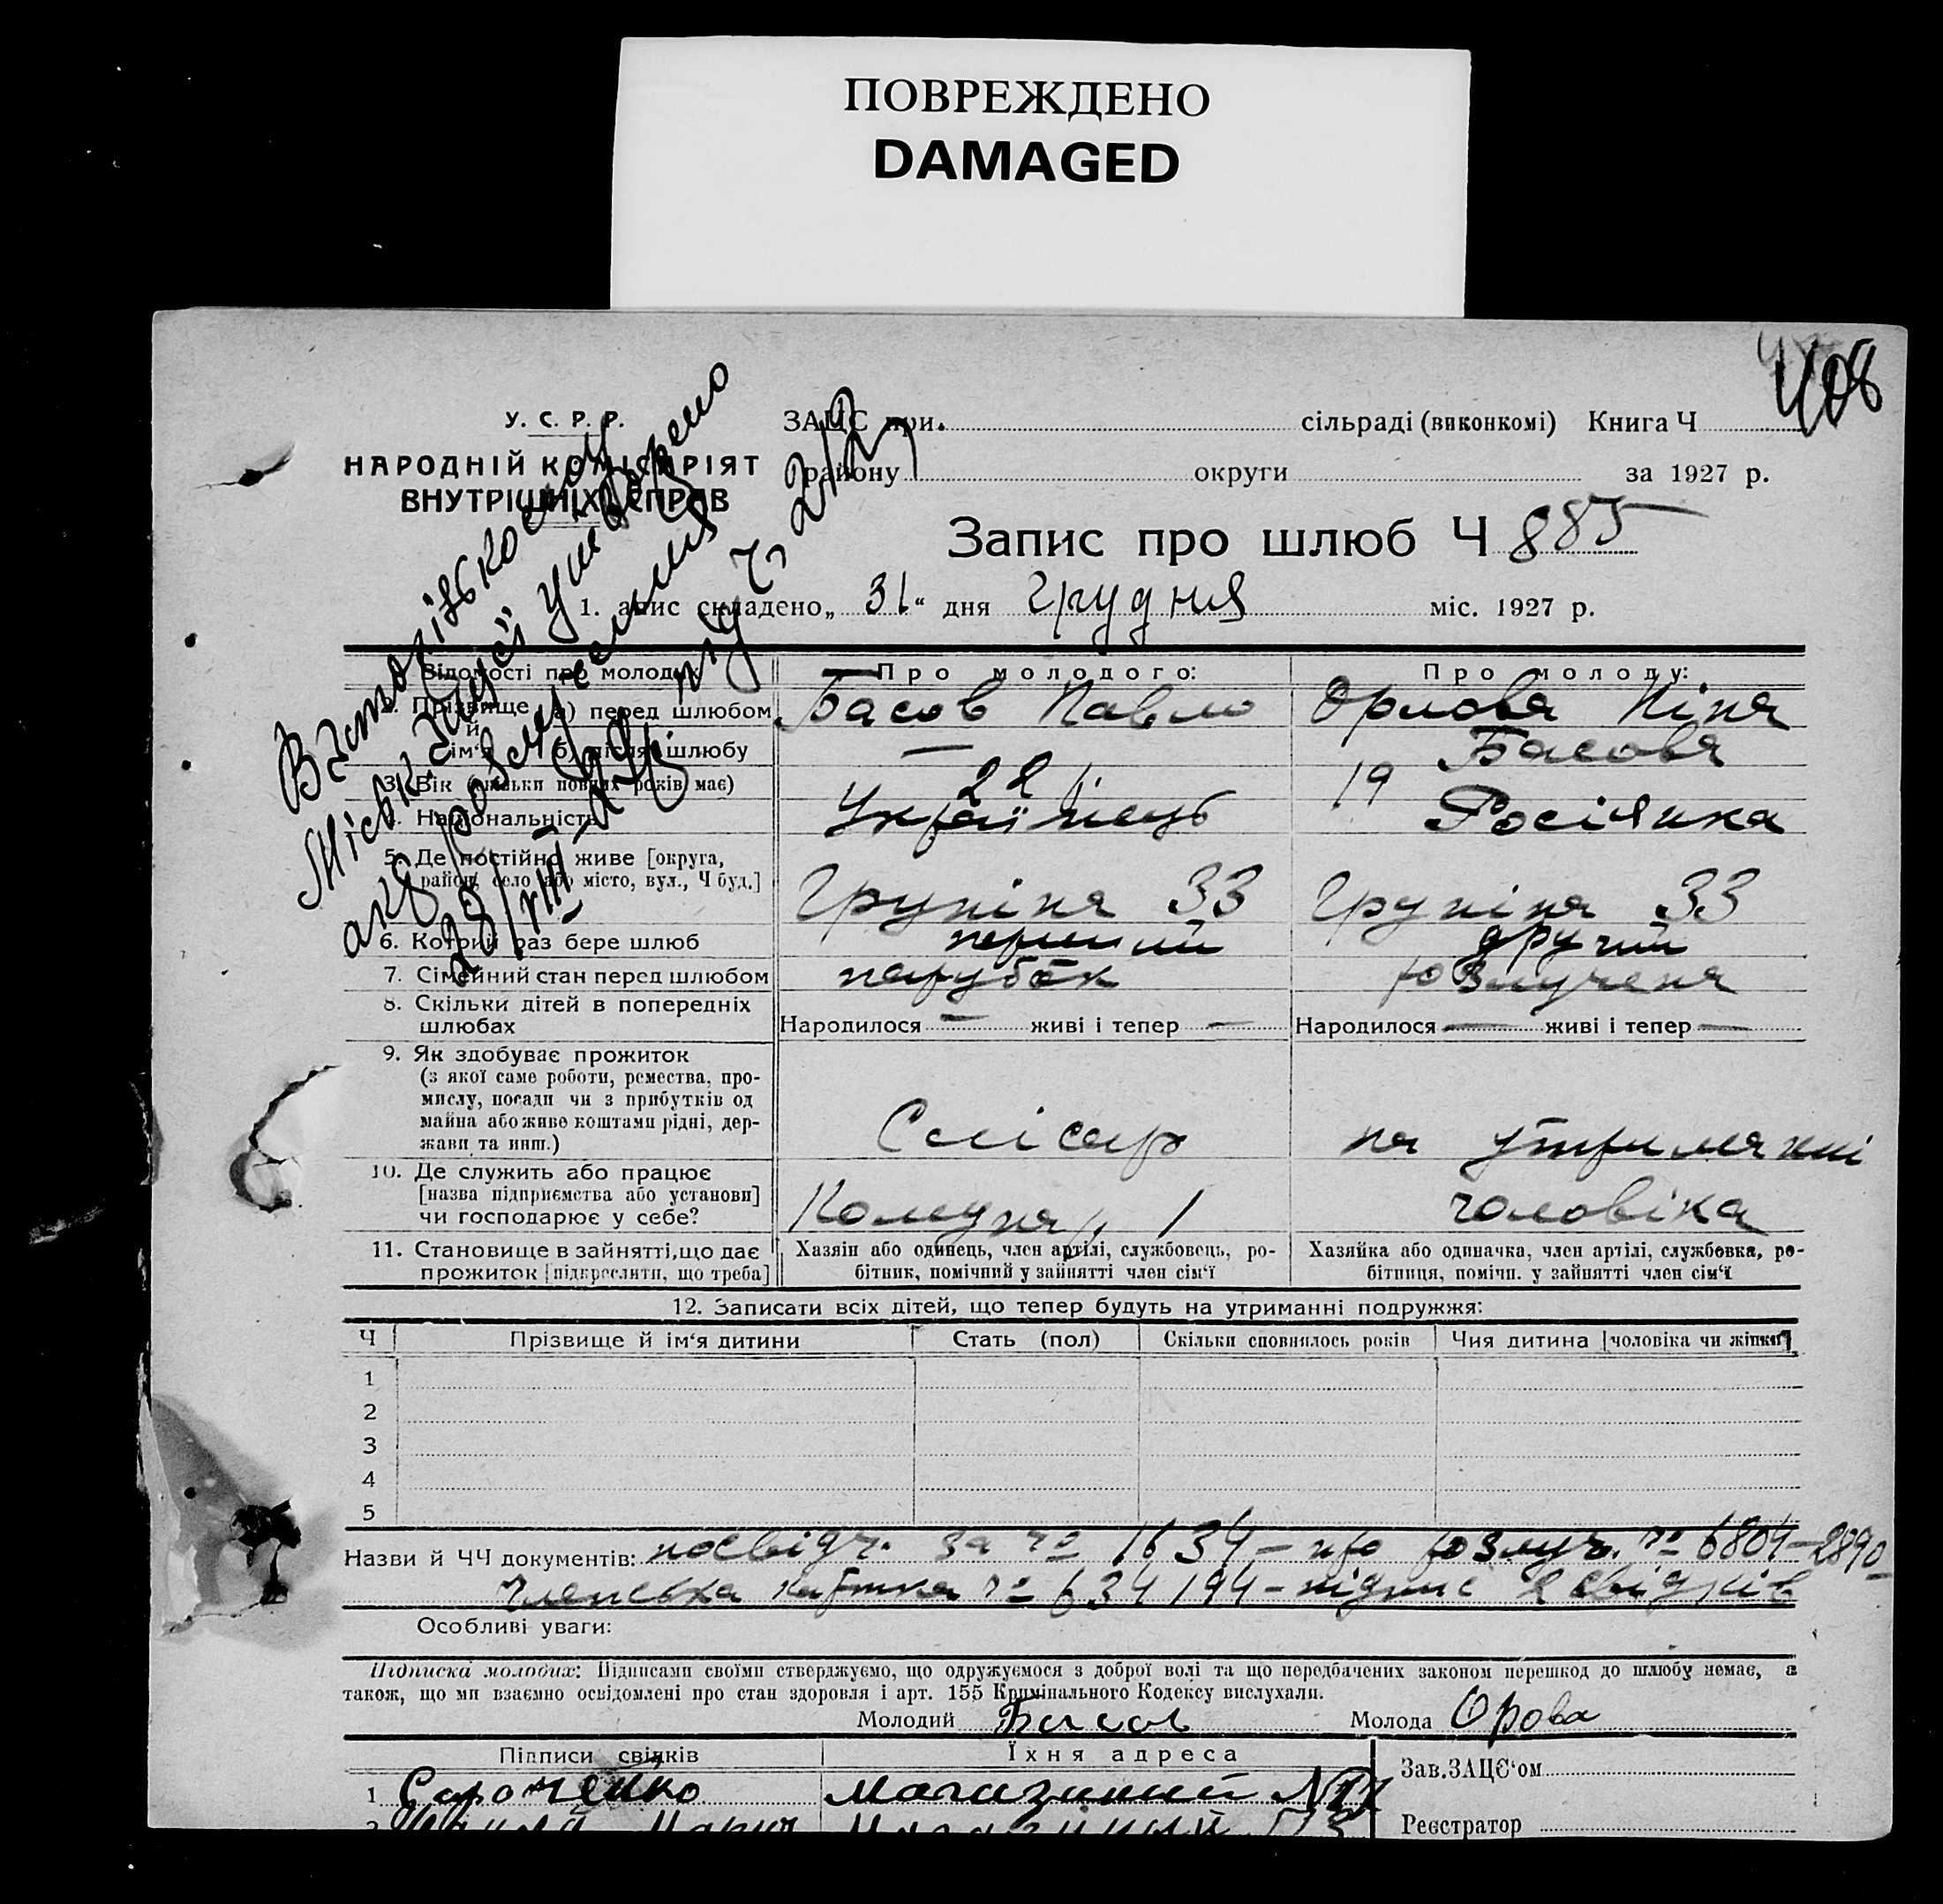 ПОВРЕЖДЕНО
DAMAGED
408
У. С. Р. Р.
НАРОДНІЙ КОМІСАРІЯТ
ВНУТРІШНІХ СПРАВ
ЗАЦС при сільраді (виконкомі) Книга Ч
району округи за 1927 р.
Запис про шлюб Ч 885
1. апис складено „31“ дня Грудня міс. 1927 р.
Відомості про молодих
Про молодого:
Про молоду:
2. Прізвище й ім‘я а) перед шлюбом
Басов Павло
Орлова Ніна
б) після шлюбу
—
Басова
3. Вік (скільки повних років має)
22
19
4. Національність
Українець
Росіянка
5. Де постійно живе [округа,
район, село або місто, вул., Ч буд.]
33
33
6. Котрий раз бере шлюб
перший
другий
7. Сімейний стан перед шлюбом
парубок
розлучена
8. Скільки дітей в попередніх
шлюбах
Народилося — живі і тепер —
Народилося — живі і тепер —
9. Як здобуває прожиток
(з якої саме роботи, ремества, про-
мислу, посади чи з прибутків од
майна або живе коштами рідні, дер-
жави та инш.)
Слісар
на утриманні
10. Де служить або працює
[назва підприємства або установи]
чи господарює у себе?
чоловіка
11. Становище в зайнятті, що дає
прожиток [підкреслити, що треба]
Хазяїн або одинець, член артілі, службовець, ро-
бітник, помічний у зайнятті член сім‘ї
Хазяйка або одиначка, член артілі, службовка, ро-
бітниця, помічн. у зайнятті член сім‘ї
12. Записати всіх дітей, що тепер будуть на утриманні подружжя:
Ч Прізвище й ім‘я дитини Стать (пол) Скільки сповнилось років Чия дитина [чоловіка чи жінки]
1
2
3
4
5
Назви й ЧЧ документів: посвідч. за № 1634 – про розлуч. № 6804–2890
Членська картка № 634194 – підпис 2 свідків
Особливі уваги:
Підписка молодих: Підписами своїми стверджуємо, що одружуємося з доброї волі та що передбачених законом перешкод до шлюбу немає, а
також, що ми взаємно освідомлені про стан здоровля і арт. 155 Кримінального Кодексу вислухали.
Молодий Басов Молода Орова
Підписи свідків
Їхня адреса
Зав. ЗАЦС‘ом
1
Магазинний
2
Реєстратор